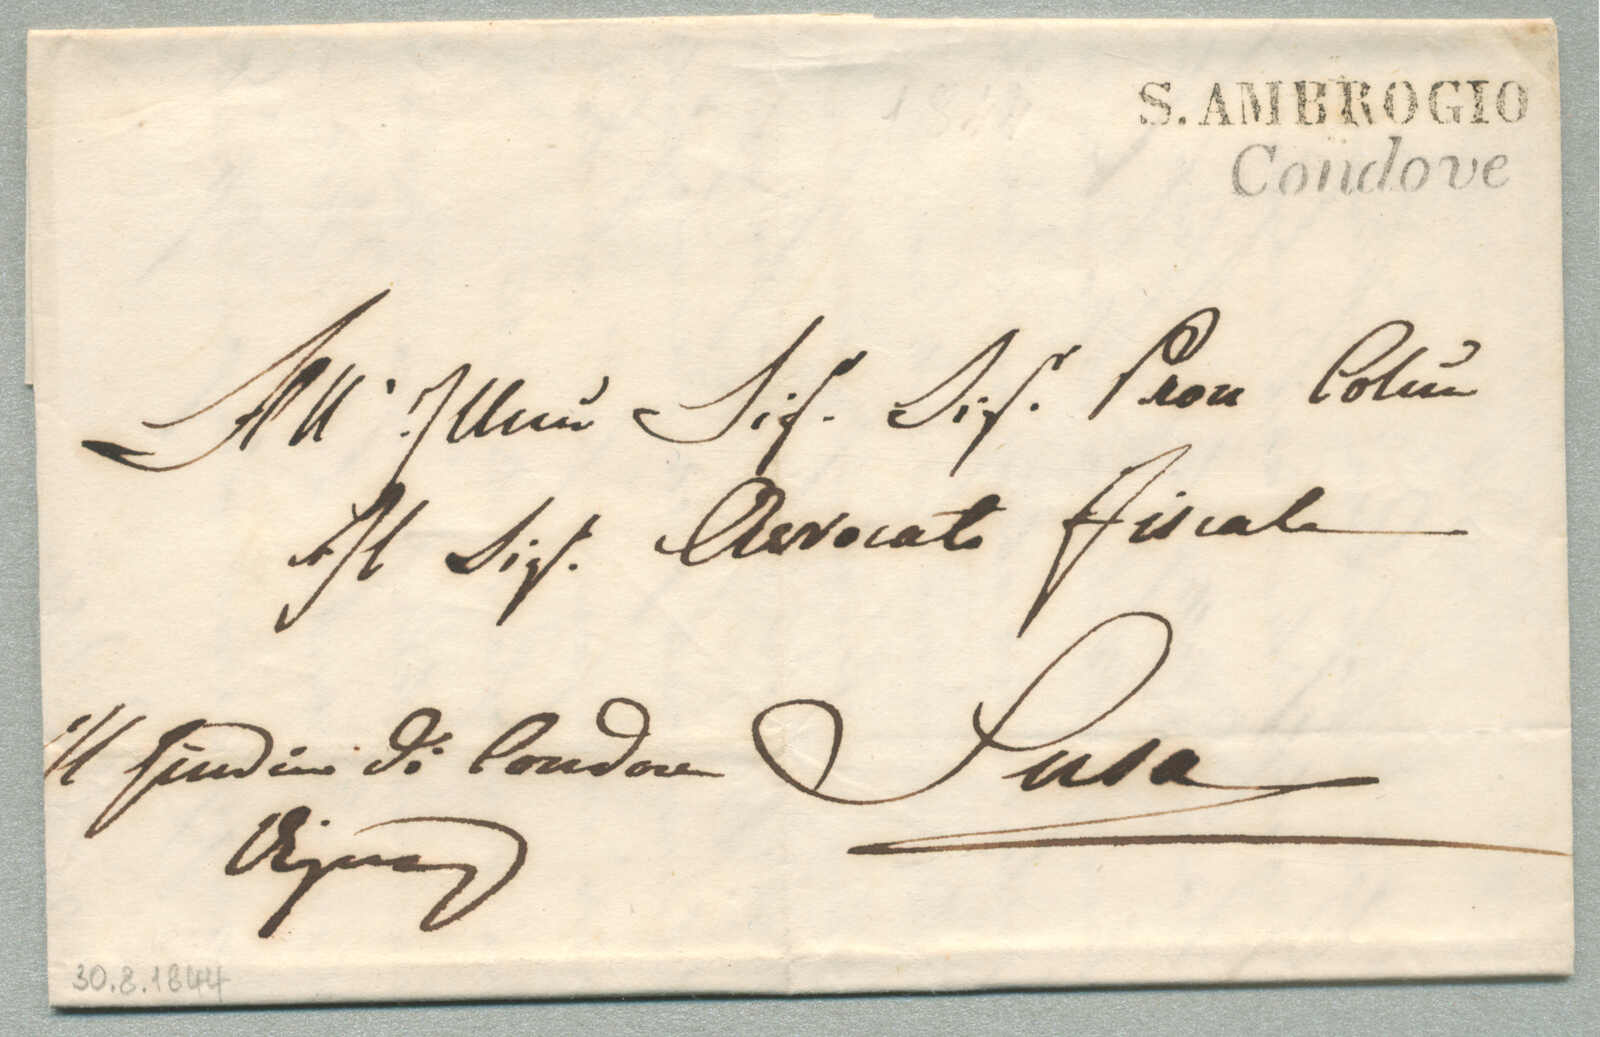 S. AMBROGIO
Condove
All' Illmo Sig. Sig. Pron Colmo
Al Sig. Avvocato Fiscale
Susa
Il Giudice di Condove
30.8.1844